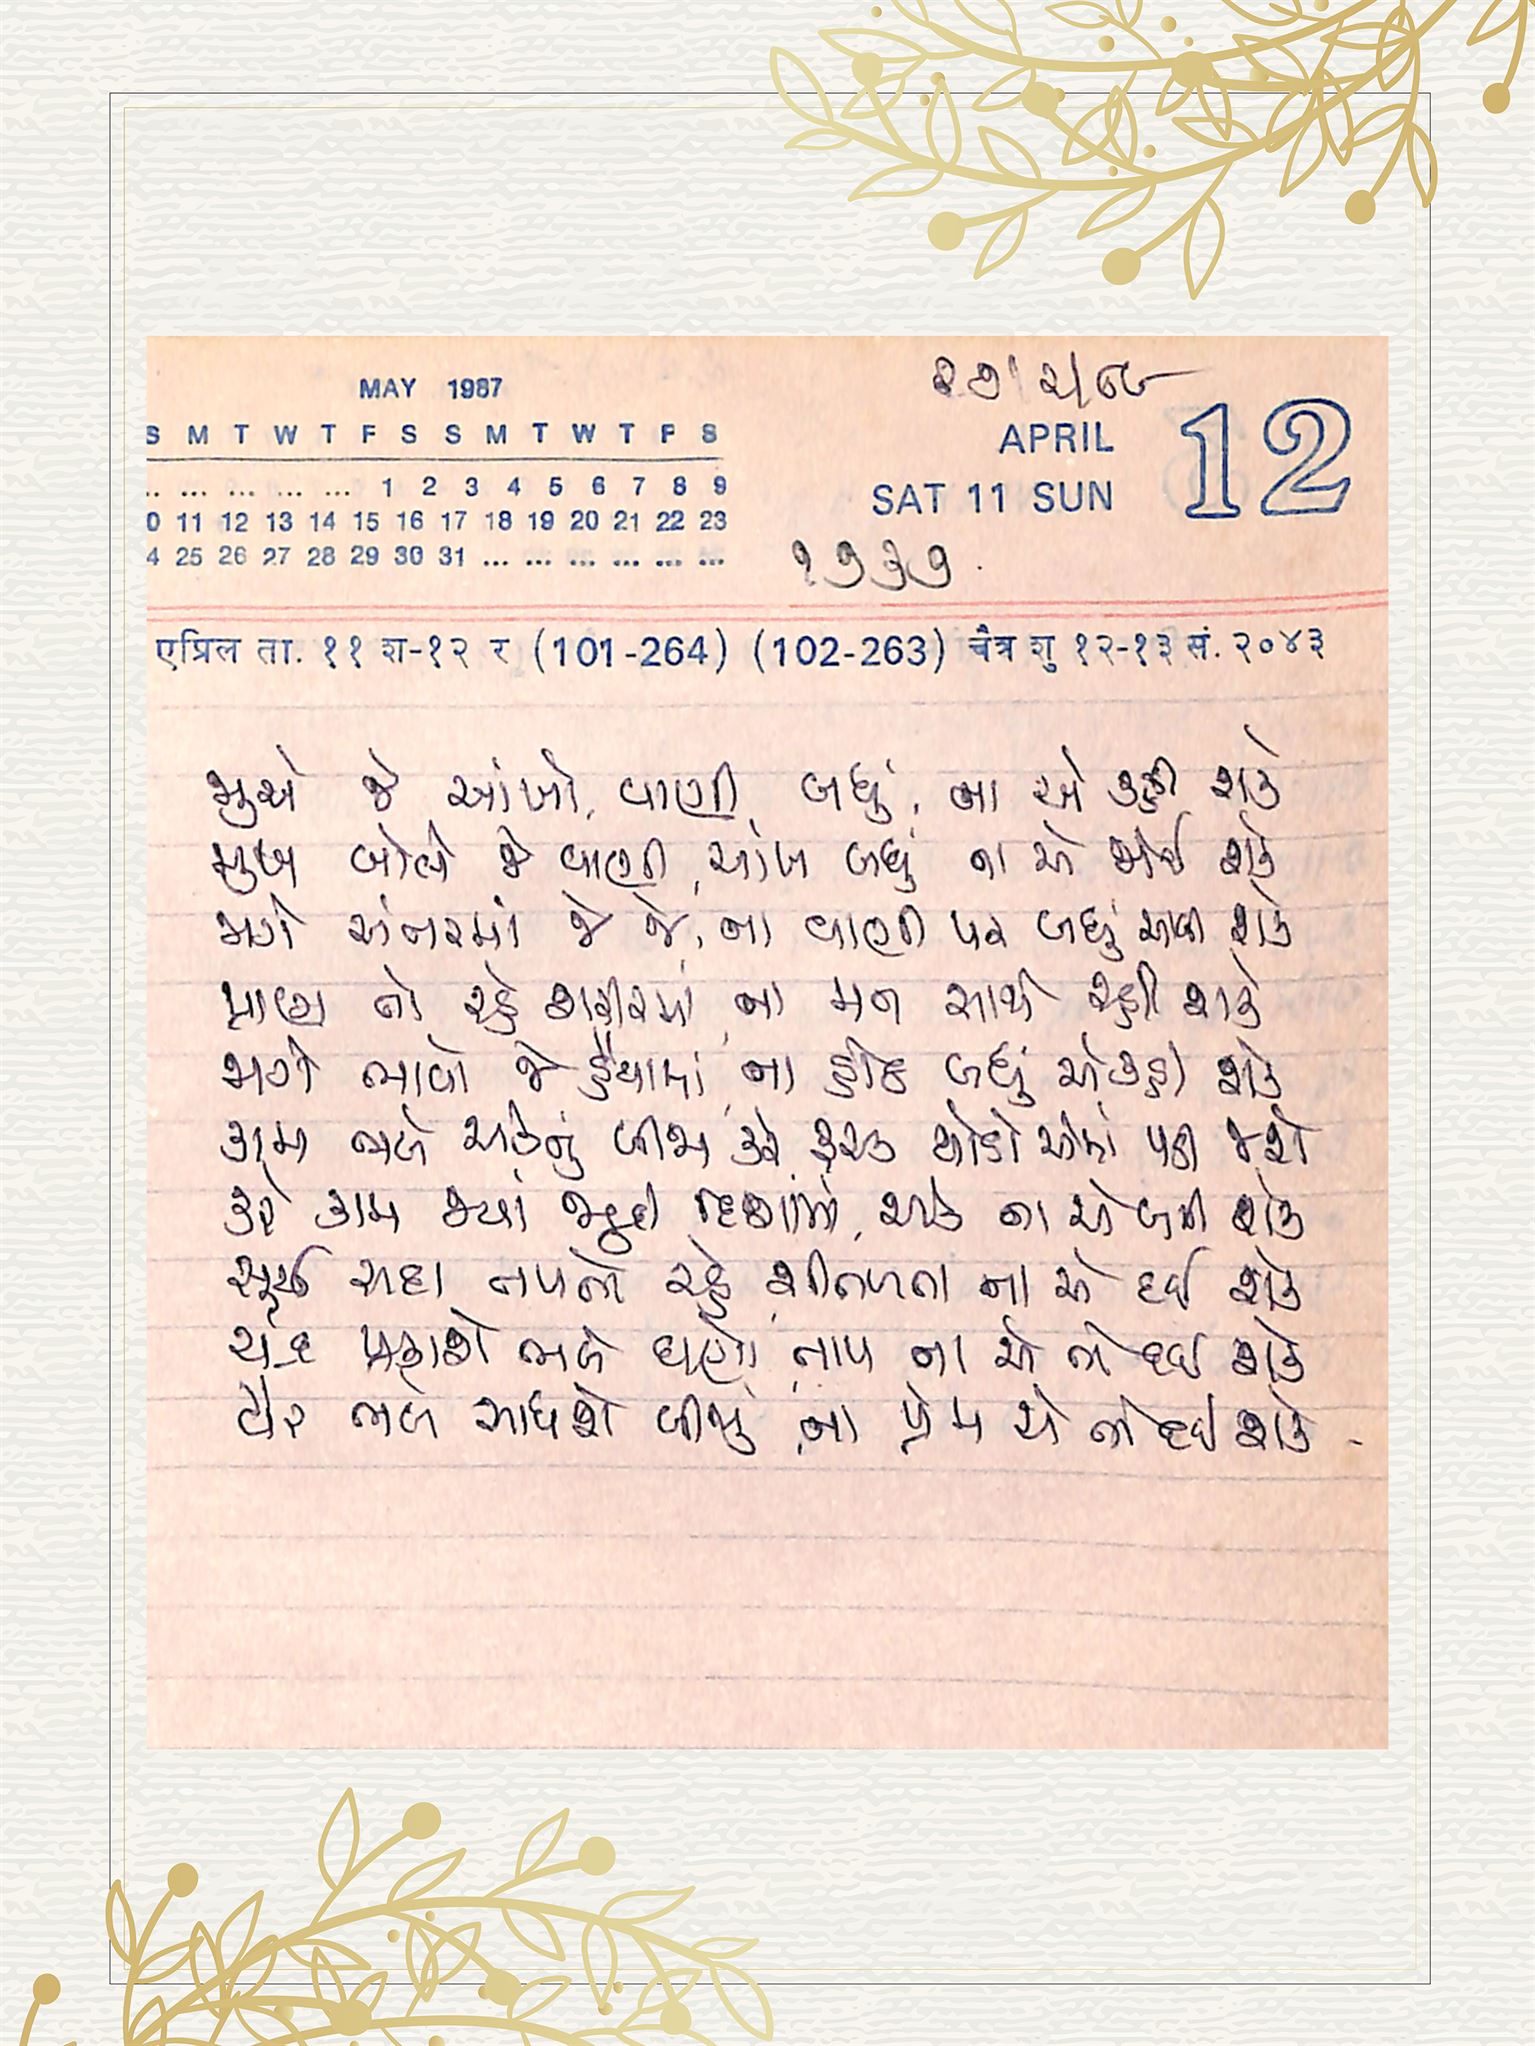 MAY 1987
S M T W T F S S M T W T F S
.. ... ... ... ... 1 2 3 4 5 6 7 8 9
0 11 12 13 14 15 16 17 18 19 20 21 22 23
4 25 26 27 28 29 30 31 ... ... ... ... ... ...
APRIL 12
SAT 11 SUN
૧૭૩૭
एप्रिल ता. ११ श-१२ र (101-264) (102-263) चैत्र शु १२-१३ सं. २०४३
જુએ જે આંખો, વાણી બધું, ના એ કહી શકે
મુખ બોલે જે વાણી, આંખ બધું ના એ જોઈ શકે
જાગે અંતરમાં જે જે, ના વાણી પર બધું આવી શકે
પ્રાણ તો રહે શરીરમાં, ના મન સાથે રહી શકે
જાગે ભાવો જે હૈયામાં, ના હોઠ બધું એ કહી શકે
કામ ભલે એકનું બીજા કરે, ફરક થોડો એમાં પડી જશે
કરે કામ જ્યાં જુદી દિશામાં, એક ના એ બની શકે
સૂર્ય સદા તપતો રહે, શીતળતા ના એ દઈ શકે
ચંદ્ર પ્રકાશે ભલે ઘણો, તાપ ના એ તો દઈ શકે
વૈર ભલે સાધશે બીજું, ના પ્રેમ એ તો દઈ શકે